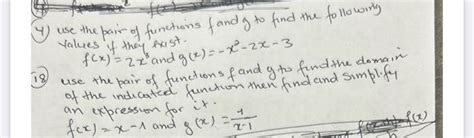 4) use the pair of functions f and g to find the following
values if they exist.
f(x) = 2x² and g(x) = -x² - 2x - 3
18 use the pair of functions f and g to find the domain
of the indicated function then find and simplify
an expression for it.
f(x) = x - 1 and g(x) = 1/(x-1)
f(x)